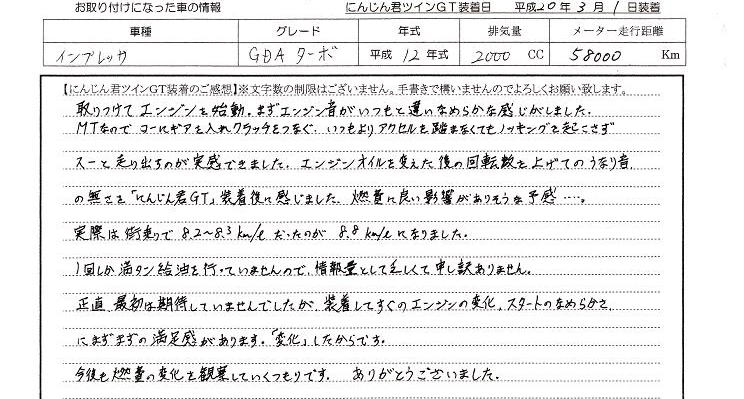 お取り付けになった車の情報 にんじん君ツインGT装着日 平成20年3月1日装着
車種 グレード 年式 排気量 メーター走行距離
インプレッサ GDA ターボ 平成 12年式 2000 CC 58000 Km
【にんじん君ツインGT装着のご感想】※文字数の制限はございません。手書きで構いませんのでよろしくお願い致します。
取りつけてエンジンを始動。まずエンジン音がいつもと違いなめらかな感じがしました。
MTなので ローにギアを入れクラッチをつなぐ、いつもよりアクセルを踏まなくてもノッキングを起こさず
スーと走り出すのが実感できました。エンジンオイルを変えた後の回転数を上げてのうなり音
の無さを「にんじん君GT」装着後に感じました。燃費に良い影響がありそうな予感……。
実際は街乗りで 8.2~8.3 km/ℓ だったのが 8.8 km/ℓ になりました。
1回しか満タン給油を行っていませんので、情報量として乏しくて申し訳ありません。
正直、最初は期待していませんでしたが、装着してすぐのエンジンの変化、スタートのなめらかさ、
にまずまずの満足感があります。「変化」したからです。
今後も燃費の変化を観察していくつもりです。 ありがとうございました。